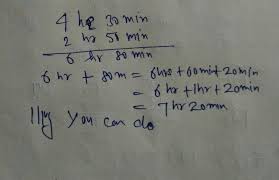 4 hr 30 min
2 hr 50 min
6 hr 80 min
6 hr + 80m = 6hr + 60min + 20min
= 6hr + 1hr + 20min
= 7hr 20min
llly You can do